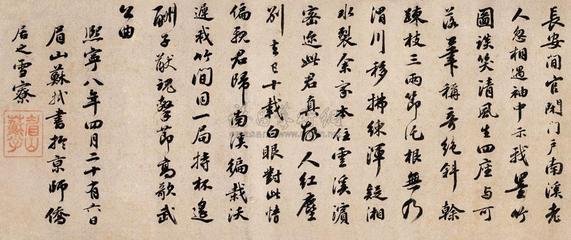 長安閒官閉門戶南溪老
人忽相過袖中示我墨竹
圖談笑清風生四座与可
落筆稱奇絕斜幹
疎枝三兩節托根無乃
渭川移拂練渾疑湘
水裂余家本住雲溪濱
密迩此君真人紅塵
別去已十載白眼對此情
偏親君歸南溪栽
遲竹間同一局持杯遙
酬子猷魂擊節高歌武
公曲
熙寧八年四月二十有六日
眉山蘇軾書於京師僑
居之雪寮
眉山蘇軾